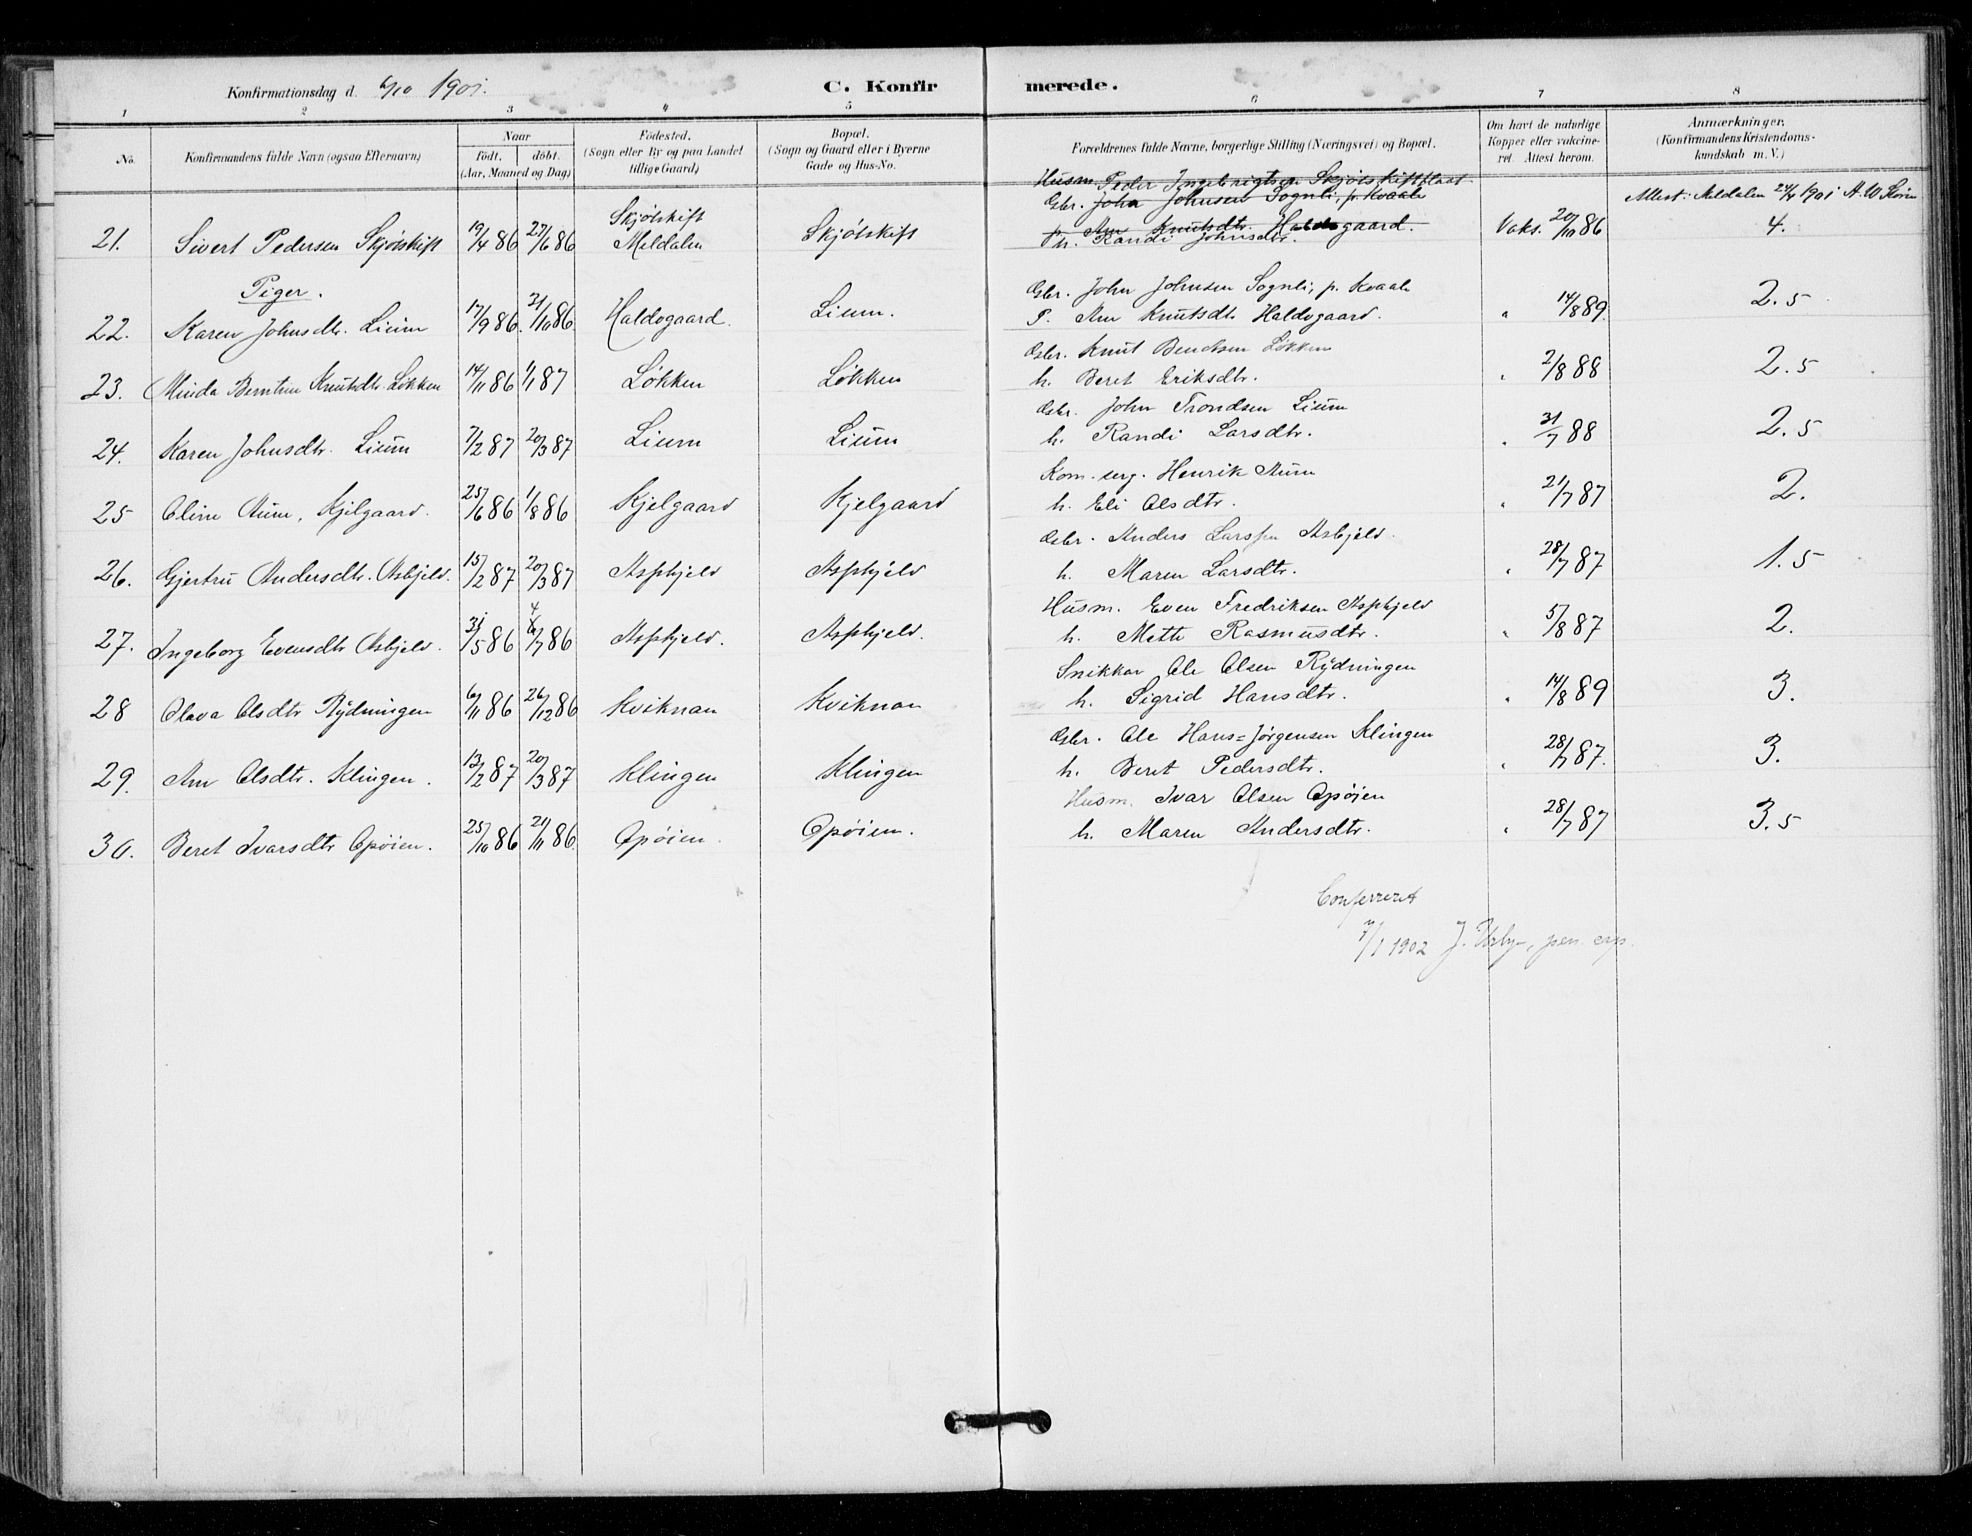 Konfirmationsdag d. 6/10 1901.
C. Konfirmerede.
1 2 3 4 5 6 7 8
No. Konfirmandens fulde Navn (ogsaa Efternavn) Naar født, døbt. (Aar, Maaned og Dag) Fødested. (Sogn eller By og paa Landet tillige Gaard) Bopæl. (Sogn og Gaard eller i Byerne Gade og Hus-No. Forældrenes fulde Navne, borgerlige Stilling (Næringsvei) og Bopæl. Om havt de naturlige Kopper eller vakcineret. Attest herom. Anmærkninger. (Konfirmandens Kristendomskundskab m. V.)
Husm. Peder Ingebrigtsen Skjølskiftflaat
Gbr. John Johnsen Sognli, p. Kvaale
P. Ane Knutsdtr. Haldogaard.
h. Randi Johnsdtr.
Attest: Meldalen 24/4 1901
21. Sivert Pedersen Skjølskift 19/4 86 27/6 86 Skjølskift Meldalen Skjølskift Vaks. 20/10 86 4.
Piger.
Gbr. John Johnsen Sognli, p. Kvaale
22. Karen Johnsdtr. Lium 17/9 86. 31/10 86. Haldogaard. Lium. P. Ane Knutsdtr. Haldogaard. " 14/8 89. 2.5
Gbr. Knut Berntsen Løkken
23. Minda Berntine Knutsdtr. Løkken 14/11 86 1/1 87 Løkken Løkken h. Beret Eriksdtr. " 2/8 88 2.5
Gbr. John Trondsen Lium
24. Karen Johnsdtr. Lium 7/2 87 20/3 87 Lium Lium h. Randi Larsdtr. " 31/7 88 2.5
Kom. serg. Henrik Aune
25 Oline Aune, Kjelgaard. 25/6 86 1/8 86 Kjelgaard Kjelgaard h. Eli Olsdtr. " 21/7 87 2.
Gbr. Anders Larssen Asbjeld.
26. Gjertru Andersdtr. Asbjeld. 15/2 87 20/3 87 Asphjeld Asphjeld h. Maren Larsdtr. " 28/7 87 1.5
Husm. Even Fredriksen Asphjeld
27. Ingeborg Evensdtr Asbjeld. 31/5 86 4/7 86 Asphjeld. Asphjeld. h. Mette Rasmusdtr. " 5/8 87 2.
Snikkar Ole Olsen Rydningen
28 Olava Olsdtr Rydningen 6/11 86 26/12 86 Kviknan Kviknan h. Sigrid Hansdtr. " 14/8 89 3.
Gbr. Ole Hans=Jørgensen Klingen
29. Ane Olsdtr. Klingen. 13/2 87 20/3 87 Klingen Klingen h. Beret Pedersdtr. " 28/7 87. 3.
Husm. Ivar Olsen Opøien
30. Beret Ivarsdtr Opøien. 25/10 86 21/11 86. Opøien. Opøien. h. Maren Andersdtr. " 28/7 87 3.5
Conferreret
7/1 1902 J.